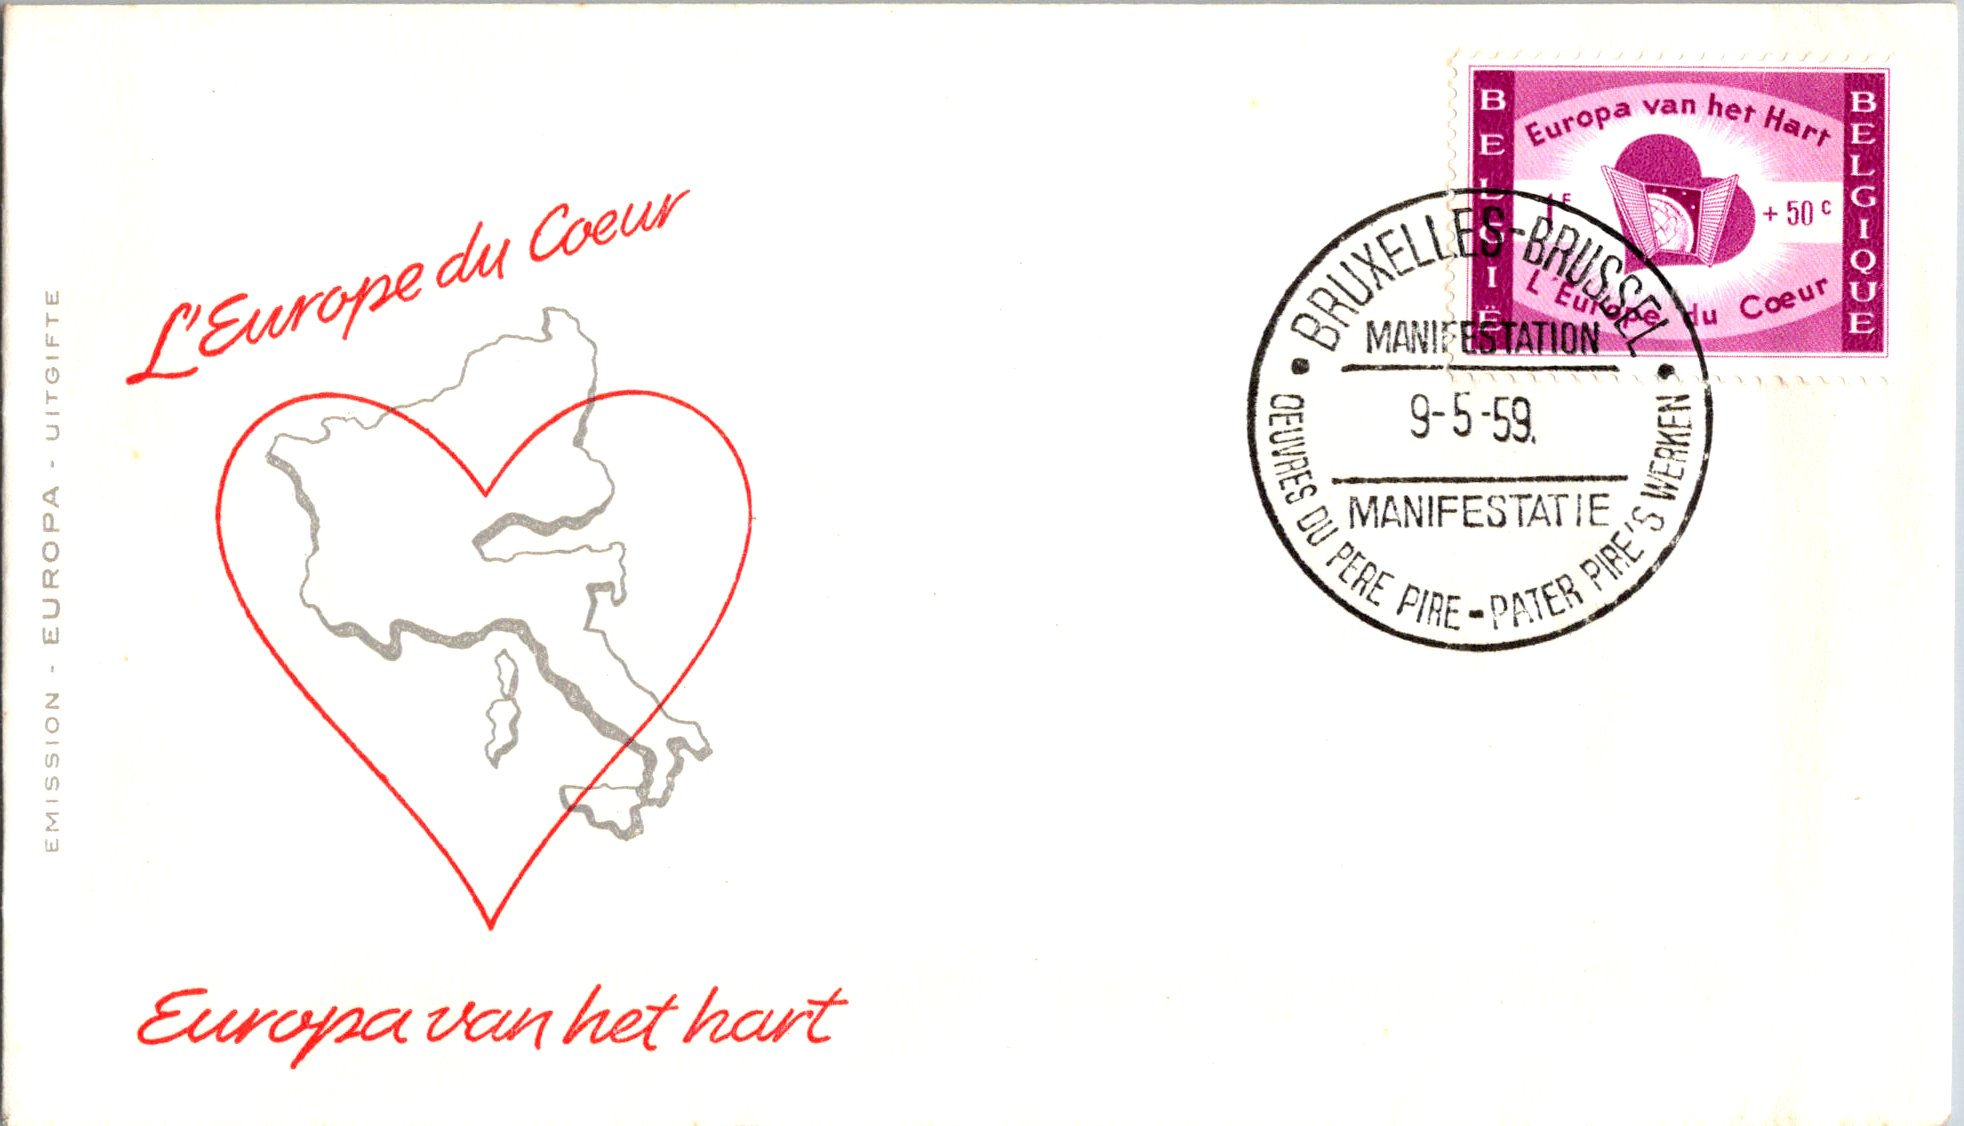 EMISSION - EUROPA - UITGIFTE
L'Europe du Coeur
Europa van het hart
BELGIË
BELGIQUE
Europa van het Hart
1F
+ 50 c
L'Europe du Coeur
BRUXELLES-BRUSSEL
MANIFESTATION
9-5-59.
MANIFESTATIE
OEUVRES DU PERE PIRE - PATER PIRE'S WERKEN